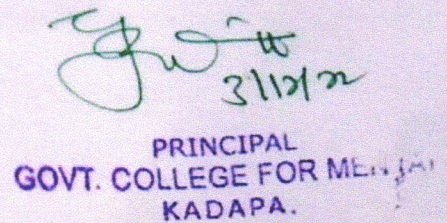 3/12/22
PRINCIPAL
GOVT. COLLEGE FOR MEN
KADAPA.